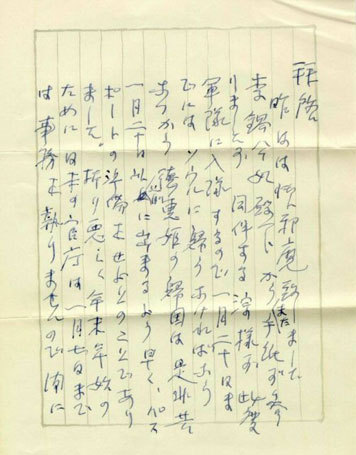 拝啓
昨日は御邪魔致しました
李鍝公妃殿下からまた手紙が参
りましたが 同件する 淙様が此度
軍隊に入隊するので一月二十日ま
でにはソウルに帰らなければなら
ず 徳恵姫の帰国は是非共
一月二十日以前に出来るよう早くパス
ポートの準備をせよとのことであり
ました。折り悪しく年末年始の
ために日本の官庁は一月七日まで
は事務を執りませんので 誠に